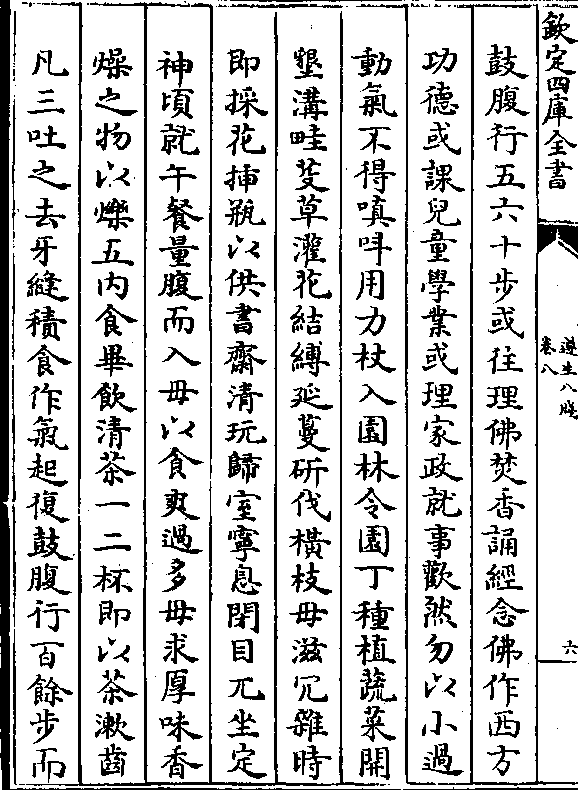 欽定四庫全書
遵生八牋
卷八
六
鼓腹行五六十步或往理佛焚香誦經念佛作西方
功德或課兒童學業或理家政就事歡然勿以小過
動氣不得嗔呌用力杖入園林令園丁種植蔬菜開
墾溝畦芟草灌花結縛延蔓斫伐橫枝毋滋冗雜時
即採花揷瓶以供書齋清玩歸室寧息閉目兀坐定
神頃就午餐量腹而入毋以食爽過多毋求厚味香
燥之物以爍五內食畢飲清茶一二杯即以茶漱齒
凡三吐之去牙縫積食作氣起復鼓腹行百餘步而